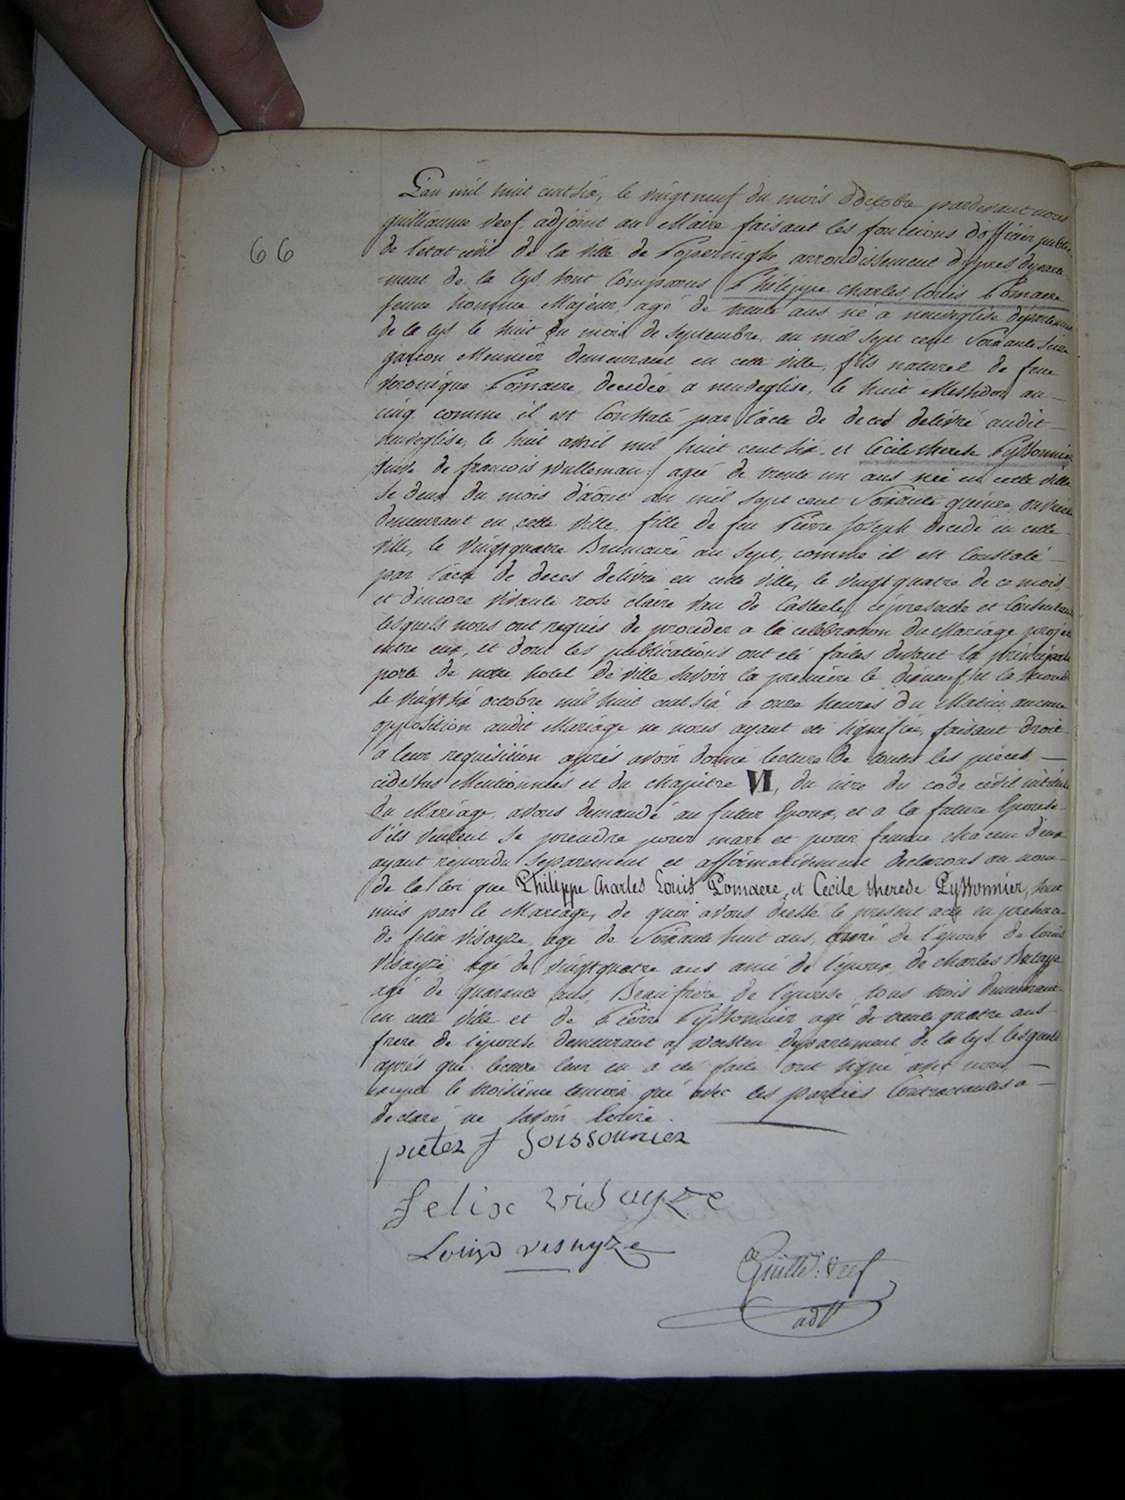 L'an mil huit cent six, le vingt neuf du mois d'octobre pardevant nous
guillaume Veef, adjoint au Maire faisant les fonctions d'officier public
66
de l'etat civil de la ville de Poperinghe arrondissement d'ypres departe-
-ment de la Lys sont Comparus Philippe charles Louis Pomaere
jeune homme Majeur, agé de trente ans né a neuveglise departement
de la Lys le huit du mois de Septembre an mil Sept cent Soixante Seize
garçon Meunier demeurant en cette ville, fils naturel de feue
Veronique Pomaere decedée a neuveglise, le huit Messidor an
cinq comme il est Constaté par l'acte de deces delivré audit
neuveglise, le huit avril mil huit cent six, et Cecile therese Pyssonnier
de francois Wulleman, agée de trente un ans née en cette ville
le deux du mois d'aout an mil sept cent Soixante quinze
demeurant en cette ville, fille de feu Pierre Joseph decedé en cette
ville, le vingt quatre Brumaire an Sept, comme il est Constaté
par l'acte de deces delivré en cette ville, le vingt quatre de ce mois,
et d'encore vivante rose claire van de Casteele, ci presente et Consentante
lesquels nous ont requis de proceder a la celebration du Mariage projeté
entre eux, et dont les publications ont eté faites devant la principale
porte de notre hotel de ville Savoir la premiere le dixneuf et la seconde
le vingt six octobre mil huit cent six a onze heures du Matin, aucune
opposition audit Mariage ne nous ayant eté signifiée, faisant droit
a leur requisition après avoir donné lecture de toutes les pieces
cidessus Mentionnées et du chapitre VI, du titre du code civil intitulé
du Mariage, avons demandé au futur Epoux, et a la future Epouse
s'ils veulent se prendre pour mari et pour femme chacun d'eux
ayant repondu Separement et affirmativement declarons au nom
de la loi que Philippe Charles Louis Pomaere, et Cécile therese Pyssonnier, sont
unis par le Mariage, de quoi avons dressé le present acte en presence
de felix visayze, agé de Soixante huit ans, de l'epoux de Louis
visayze agé de vingt quatre ans ami de l'epoux, de charles
agé de quarante ans, Beaufrère de l'epouse, tous trois demeurant
en cette ville et de Pierre Pyssonnier agé de trente quatre ans
frere de l'epouse demeurant a departement de la Lys, lesquels
après que lecture leur en a eté faite ont signé avec nous
excepté le troisième temoin qui avec les parties Contractantes a
declaré ne savoir Ecrire.
pieter J Soissounier
felix visayze
Louis visayze
Guille: Veef
adt